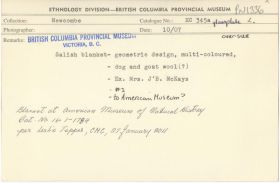 ETHNOLOGY DIVISION—BRITISH COLUMBIA PROVINCIAL MUSEUM
PN1336
Collection: Newcombe
Catalogue No.: EC 345a
L.
Photographer:
Date: 10/07
Remarks: BRITISH COLUMBIA PROVINCIAL MUSEUM
VICTORIA, B. C.
Salish blanket- geometric design, multi-coloured,
- dog and goat wool(?)
- Ex. Mrs. J'B. McKays
- #1
- to American Museum?
Blanket at American Museum of Natural History
Cat No 16.1-1784
per Leslie Tepper, CMC, 25 January 2011